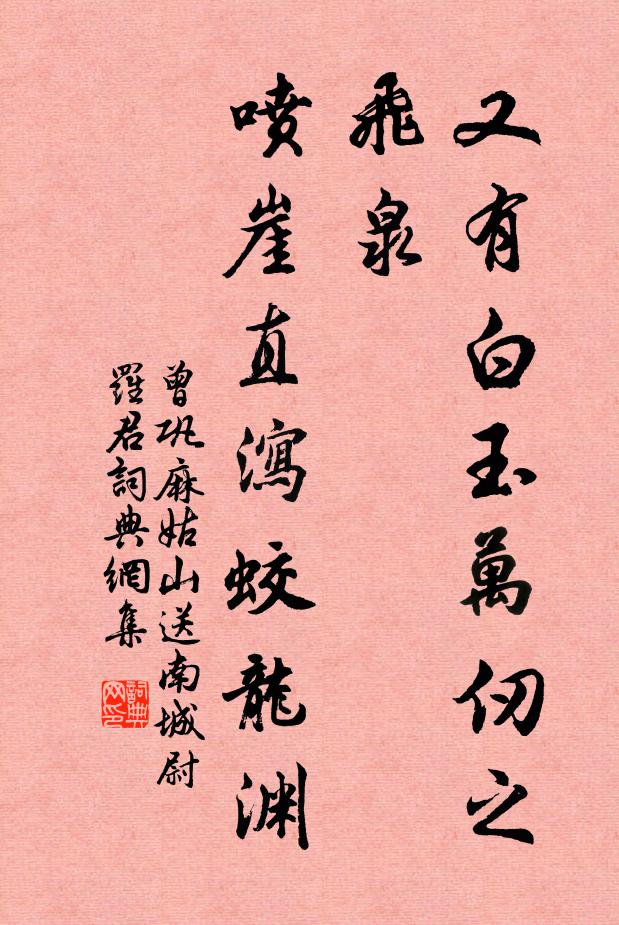 又有白玉萬仞之
飛泉
噴崖直瀉蛟龍淵
曾巩麻姑山送南城尉
羅君詞典網集
詞典
网印